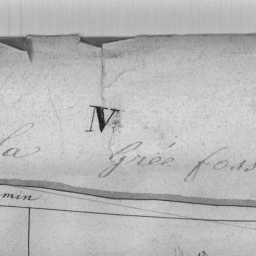 N
la Grée foss
min